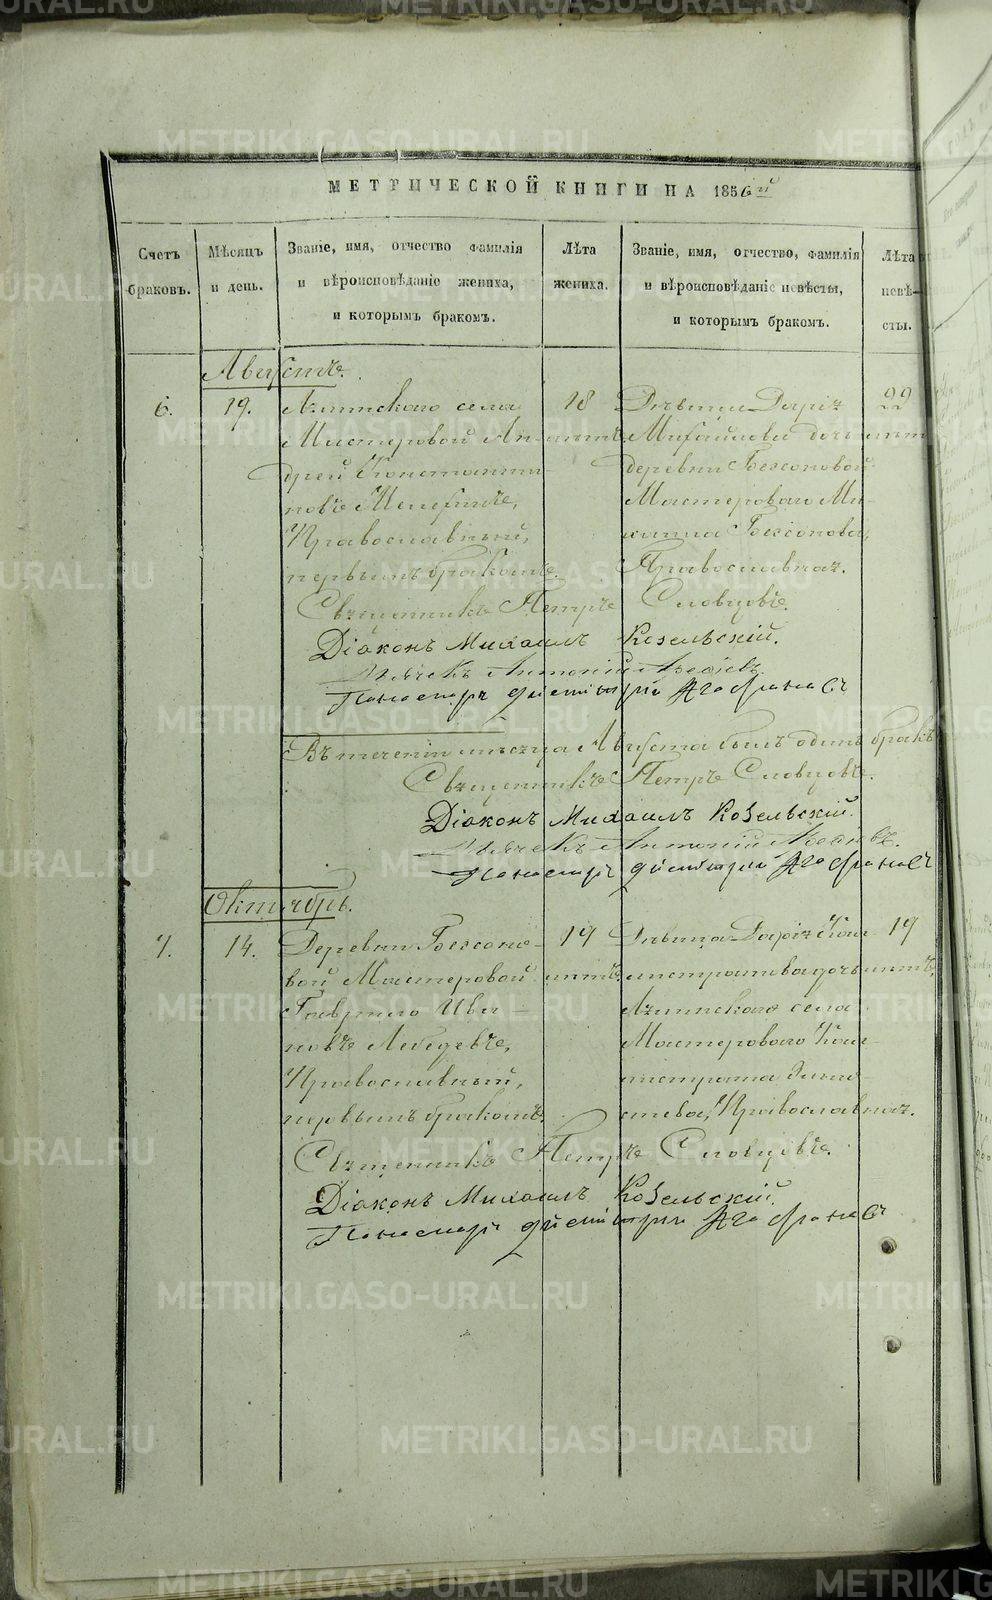 МЕТРИЧЕСКОЙ КНИГИ НА 1856й
Счетъ браковъ.
Мѣсяцъ и день.
Званіе, имя, отчество фамилія и вѣроисповѣданіе жениха, и которымъ бракомъ.
Лѣта жениха.
Званіе, имя, отчество, фамилія и вѣроисповѣданіе невѣсты, и которымъ бракомъ.
Лѣта невѣ-сты.
Августъ.
6.
19.
Аятскаго села
Мастеровой Ан-
дрей Константи-
новъ
Православный,
первымъ бракомъ.
18
лѣтъ
Дѣвица Дарія
Михайлова дочь
деревни Бехсоновой
Мастероваго Ми-
хаила Бехсонова,
Православная.
22
лѣт
Священникъ Петръ Словцовъ.
Діаконъ Михаилъ Козельскій.
Дьячекъ Антоній
Пономарь Димитрій
Въ теченіи мѣсяца Августа былъ одинъ бракъ
Священникъ Петръ Словцовъ.
Діаконъ Михаилъ Козельскій.
Дьячекъ Антоній
Пономарь Димитрій
Октябрь.
7.
14.
Деревни Бехсоно-
вой Мастеровой
Гаврило Ива-
новъ Лебедевъ,
Православный,
первымъ бракомъ.
19
лѣтъ.
Дѣвица Дарія Кал-
листратова дочь
Аятскаго села
Мастероваго Кал-
листрата
Православная.
19
лѣтъ.
Священникъ Петръ Словцовъ.
Діаконъ Михаилъ Козельскій.
Пономарь Димитрій
METRIKI.GASO-URAL.RU